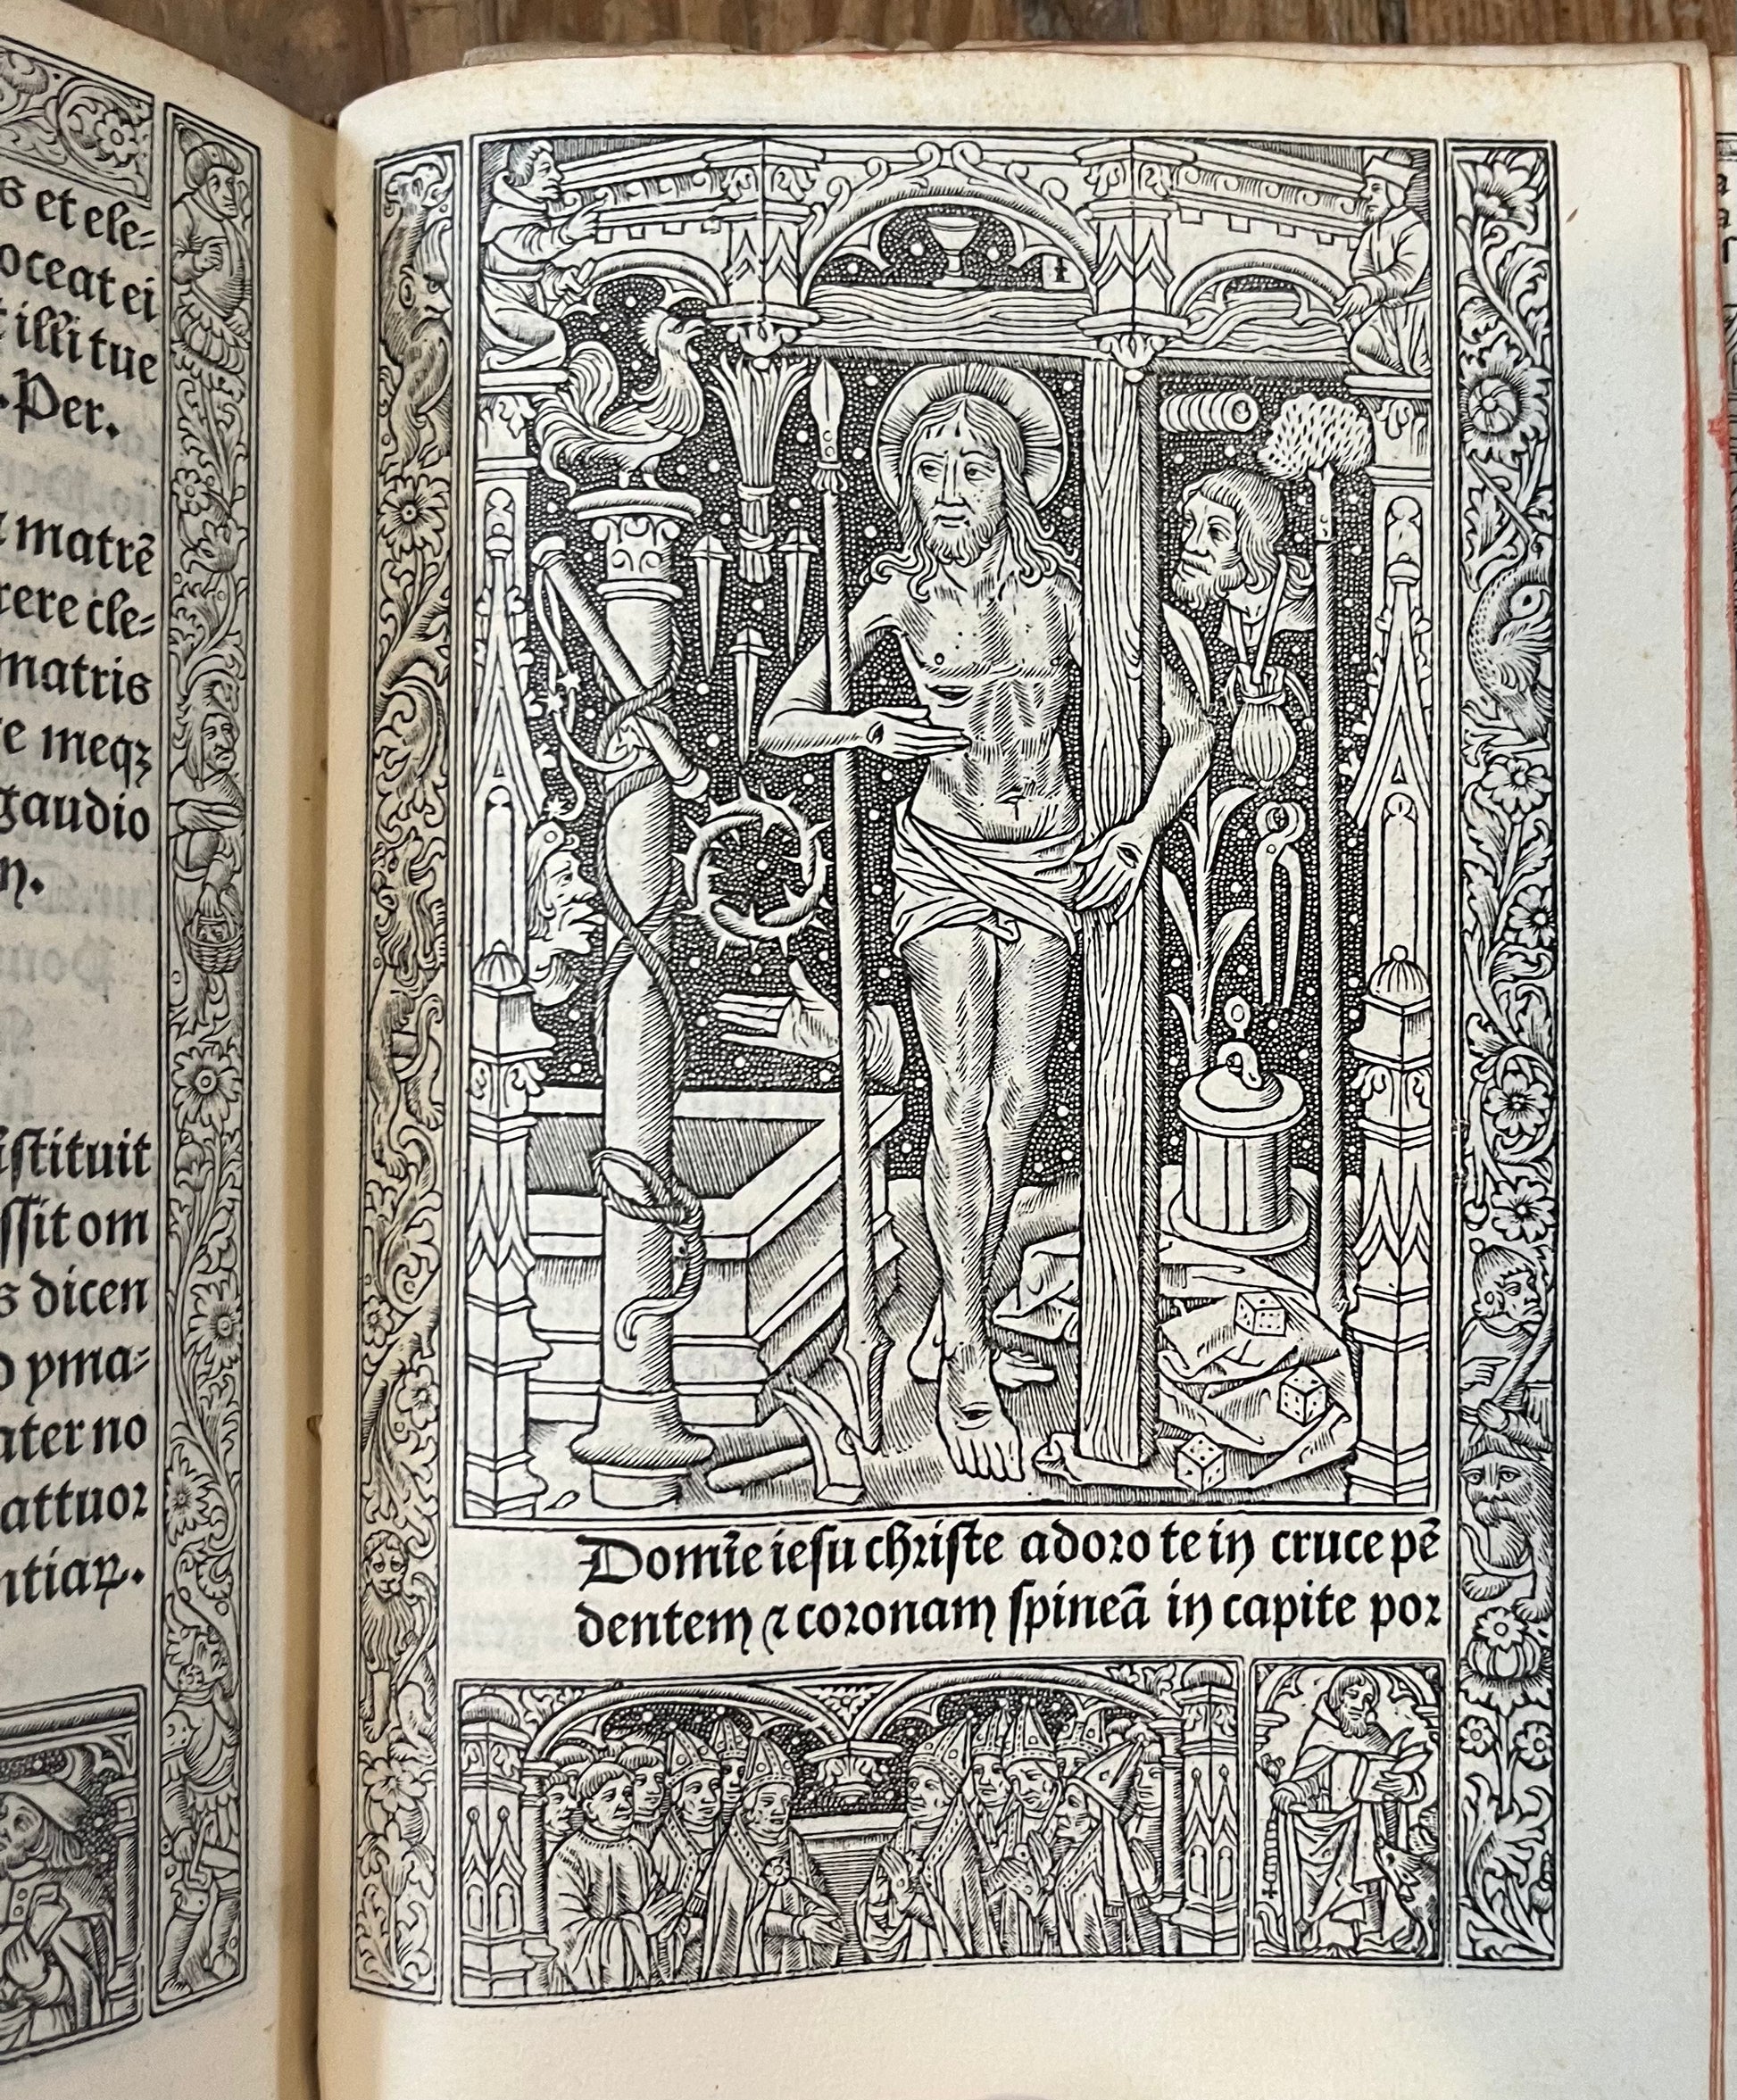 s et ele⸗
oceat ei
t illi tue
. Per.
matrē
rere cle⸗
matris
e meqꝫ
gaudio
n.
istituit
ssit om
s dicen
o yma⸗
ater no
attuor
ntiaꝝ.
Domīe iesu christe adoro te in cruce pē
dentem ⁊ coronam spineā in capite por